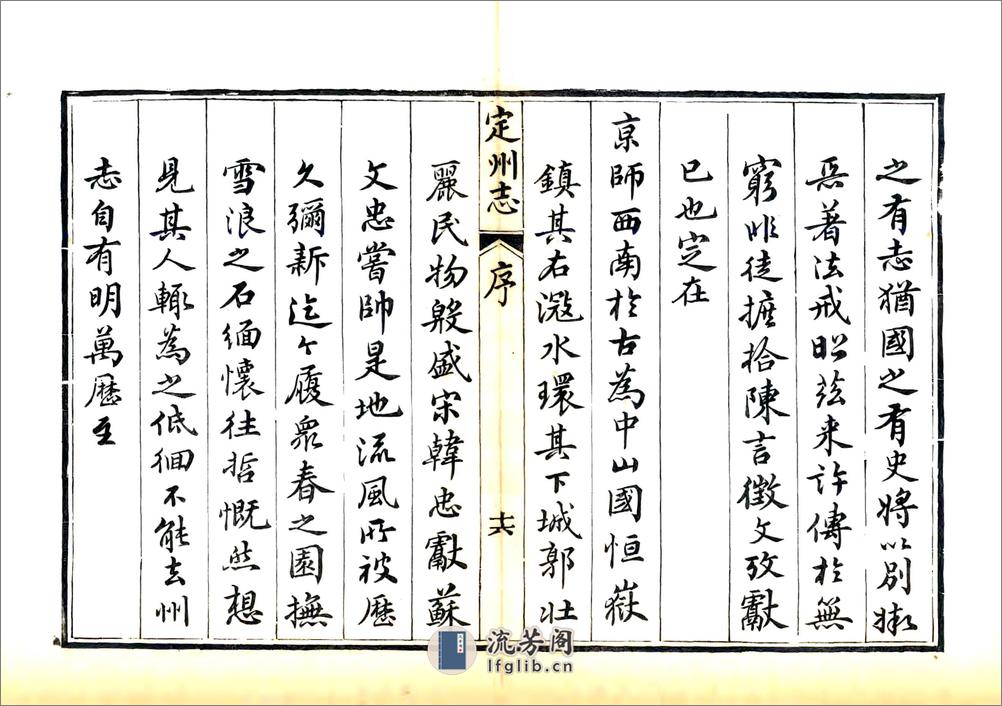 之有志猶國之有史將以別媺
惡著法戒昭茲来許傳於無
窮唯徒摭拾陳言徵文攷獻
已也定在
京師西南於古為中山國恒嶽
鎮其右滱水環其下城郭壯
定州志 序 十六
麗民物殷盛宋韓忠獻蘇
文忠嘗帥是地流風所被歷
久彌新迄今履衆春之園撫
雪浪之石緬懷往哲慨然想
見其人輙為之低徊不能去州
志自有明萬歷至
流芳阁
lfglib.cn